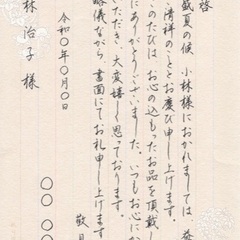 啓
盛夏の候、小林様におかれましては
清祥のこととお慶び申し上げます。
このたびは、お心の込もったお品を頂戴し
にありがとうございました。いつもお心にお
いただき、大変嬉しく思っております。
略儀ながら、書面にてお礼申し上げます。
敬具
令和〇年〇月〇日
〇〇 〇〇
林 治子 様